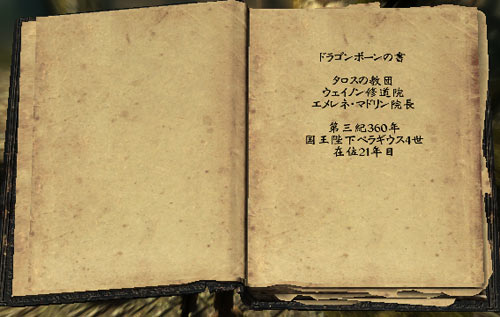 ドラゴンボーンの書
タロスの教団
ウェイノン修道院
エメレネ・マドリン院長
第三紀360年
国王陛下ペラギウス4世
在位21年目